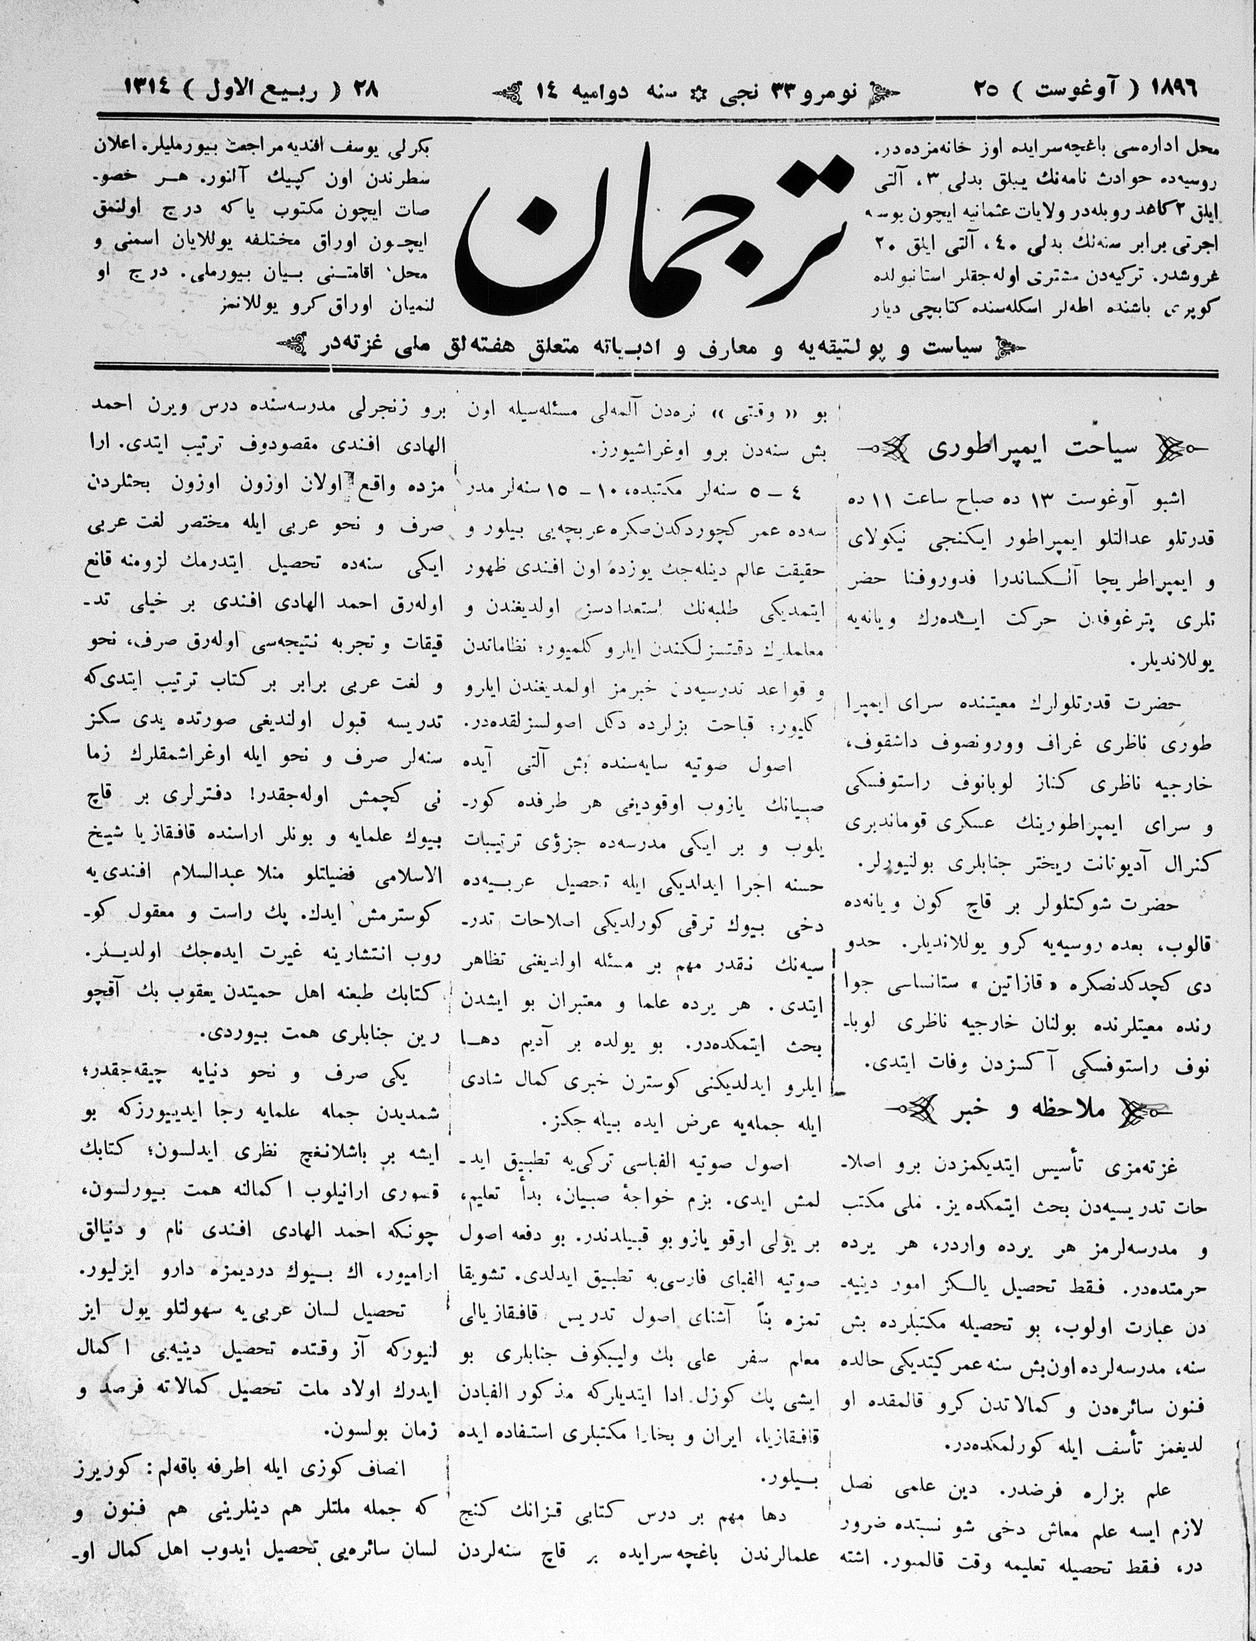 ١٨٩٦ ( آوغوست ) ٢٥
نومرو ٣٣ نجى ✡ سنه دواميه ١٤
٢٨ ( ربيع الاول ) ١٣١٤
محل اداره‌سى باغچه‌سرايده اوز خانه‌مزده‌در.
روسيه‌ده حوادث نامه‌نك ييلق بدلى ٣، آلتى
ايلق ٢ كاغد روبله‌در ولايات عثمانيه ايچون بوسه
اجرتى برابر سنه‌نك بدلى ٤٠، آلتى ايلق ٢٠
غروشدر. تركيه‌دن مشترى اوله‌جقلر استانبولده
كوپرى باشنده اطه‌لر اسكله‌سنده كتابچى ديار
ترجمان
بكرلى يوسف افنديه مراجعت بيورمليلر. اعلان
سطرندن اون كپيك آلنور. هر خصو-
صات ايچون مكتوب ياكه درج اولنمق
ايچون اوراق مختلفه يوللايان اسمنى و
محل اقامتنى بيان بيورملى. درج او
لنميان اوراق كرو يوللانمز
سياست و پولتيقه‌يه و معارف و ادبياته متعلق هفته‌لق ملى غزته‌در
سياحت ايمپراطورى
اشبو آوغوست ١٣ ده صباح ساعت ١١ ده
قدرتلو عدالتلو ايمپراطور ايكنجى نيكولاى
و ايمپراطريچا آلكساندرا فدوروفنا حضر
تلرى پترغوفدن حركت ايده‌رك ويانه‌يه
يوللانديلر.
حضرت قدرتلولرك معيتنده سراى ايمپرا
طورى ناظرى غراف وورونصوف داشقوف،
خارجيه ناظرى كناز لوبانوف راستوفسكى
و سراى ايمپراطورينك عسكرى قوماندبرى
كنرال آديوتانت ريختر جنابلرى بولنيورلر.
حضرت شوكتلولر بر قاچ كون ويانه‌ده
قالوب، بعده روسيه‌يه كرو يوللانديلر. حدو
دى كچدكدنصكره «قازاتين» ستانساسى جوا
رنده معيتلرنده بولنان خارجيه ناظرى لوبا-
نوف راستوفسكى آكسزدن وفات ايتدى.
ملاحظه و خبر
غزته‌مزى تأسيس ايتديكمزدن برو اصلا-
حات تدريسيه‌دن بحث ايتمكده‌يز. ملى مكتب
و مدرسه‌لرمز هر يرده واردر، هر يرده
حرمتده‌در. فقط تحصيل يالكز امور دينيه-
دن عبارت اولوب، بو تحصيله مكتبلرده بش
سنه، مدرسه‌لرده اون‌بش سنه عمر كيتديكى حالده
فنون سائره‌دن و كمالاتدن كرو قالمقده او
لديغمز تأسف ايله كورلمكده‌در.
علم بزلره فرضدر. دين علمى نصل
لازم ايسه علم معاش دخى شو نسبتده ضرور
در، فقط تحصيله تعليمه وقت قالميور. اشته
بو «وقتى» نره‌دن آلمه‌لى مسئله‌سيله اون
بش سنه‌دن برو اوغراشيورز.
٤ – ٥ سنه‌لر مكتبده، ١٠ – ١٥ سنه‌لر مدر
سه‌ده عمر كچوردكدن‌صكره عربچه‌يى بيلور و
حقيقت عالم دينله‌جك يوزده اون افندى ظهور
ايتمديكى طلبه‌نك استعدادسز اولديغندن و
معلملرك دقتسزلكندن ايلرو كلميور؛ نظاماتدن
و قواعد تدرسيه‌دن خبرمز اولمديغندن ايلرو
كليور: قباحت بزلرده دكل اصولسزلقده‌در.
اصول صوتيه سايه‌سنده بش آلتى آيده
صبيانك يازوب اوقوديغى هر طرفده كور-
يلوب و بر ايكى مدرسه‌ده جزؤى ترتيبات
حسنه اجرا ايدلديكى ايله تحصيل عربيه‌ده
دخى بيوك ترقى كورلديكى اصلاحات تدر-
سيه‌نك نقدر مهم بر مسئله اولديغنى تظاهر
ايتدى. هر يرده علما و معتبران بو ايشدن
بحث ايتمكده‌در. بو يولده بر آديم دها
ايلرو ايدلديكنى كوسترن خبرى كمال شادى
ايله جمله‌يه عرض ايده بيله‌جكز.
اصول صوتيه الفباسى تركى‌يه تطبيق ايد-
لمش ايدى. بزم خواجهٔ صبيان، بدأ تعليم،
بر يؤلى اوقو يازو بو قبيلدندر. بو دفعه اصول
صوتيه الفباى فارسى‌يه تطبيق ايدلدى. تشويقا
تمزه بناً آشناى اصول تدريس قافقازيالى
معلم سفر على بك وليبكوف جنابلرى بو
ايشى پك كوزل ادا ايتديلركه مذكور الفبادن
قافقازيا، ايران و بخارا مكتبلرى استفاده ايده
بيلور.
دها مهم بر درس كتابى قزانك كنج
علمالرندن باغچه‌سرايده بر قاچ سنه‌لردن
برو زنجرلى مدرسه‌سنده درس ويرن احمد
الهادى افندى مقصودوف ترتيب ايتدى. ارا
مزده واقع اولان اوزون اوزون بحثلردن
صرف و نحو عربى ايله مختصر لغت عربى
ايكى سنه‌ده تحصيل ايتدرمك لزومنه قانع
اوله‌رق احمد الهادى افندى بر خيلى تد-
قيقات و تجربه نتيجه‌سى اوله‌رق صرف، نحو
و لغت عربى برابر بر كتاب ترتيب ايتدى‌كه
تدريسه قبول اولنديغى صورتده يدى سكز
سنه‌لر صرف و نحو ايله اوغراشمقلرك زما
نى كچمش اوله‌جقدر! دفترلرى بر قاچ
بيوك علمايه و بونلر اراسنده قافقازيا شيخ
الاسلامى فضيلتلو منلا عبدالسلام افندى‌يه
كوسترمش ايدك. پك راست و معقول كو-
روب انتشارينه غيرت ايده‌جك اولديلر.
كتابك طبعنه اهل حميتدن يعقوب بك آقچو
رين جنابلرى همت بيوردى.
يكى صرف و نحو دنيايه چيقه‌جقدر؛
شمديدن جمله علمايه رجا ايدييورزكه بو
ايشه بر باشلانغچ نظرى ايدلسون؛ كتابك
قسورى ارانيلوب اكمالنه همت بيورلسون،
چونكه احمد الهادى افندى نام و دنيالق
اراميور، اك بيوك درديمزه دارو ايزليور.
تحصيل لسان عربى‌يه سهولتلو يول ايز
لنيوركه آز وقتده تحصيل دينيه‌يى اكمال
ايدرك اولاد ملت تحصيل كمالاته فرصد و
زمان بولسون.
انصاف كوزى ايله اطرفه باقه‌لم: كوريرز
كه جمله ملتلر هم دينلرينى هم فنون و
لسان سائره‌يى تحصيل ايدوب اهل كمال او-